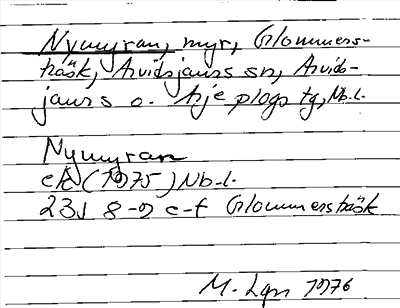 Nymyran, myr, Glommers-
träsk, Arvidsjaurs sn, Arvids-
jaurs o. Arjeplogs tg, Nb.l.
Nymyran
ek (1975) Nb.l.
23J 8-9 e-f Glommersträsk
M. Lgn 1976